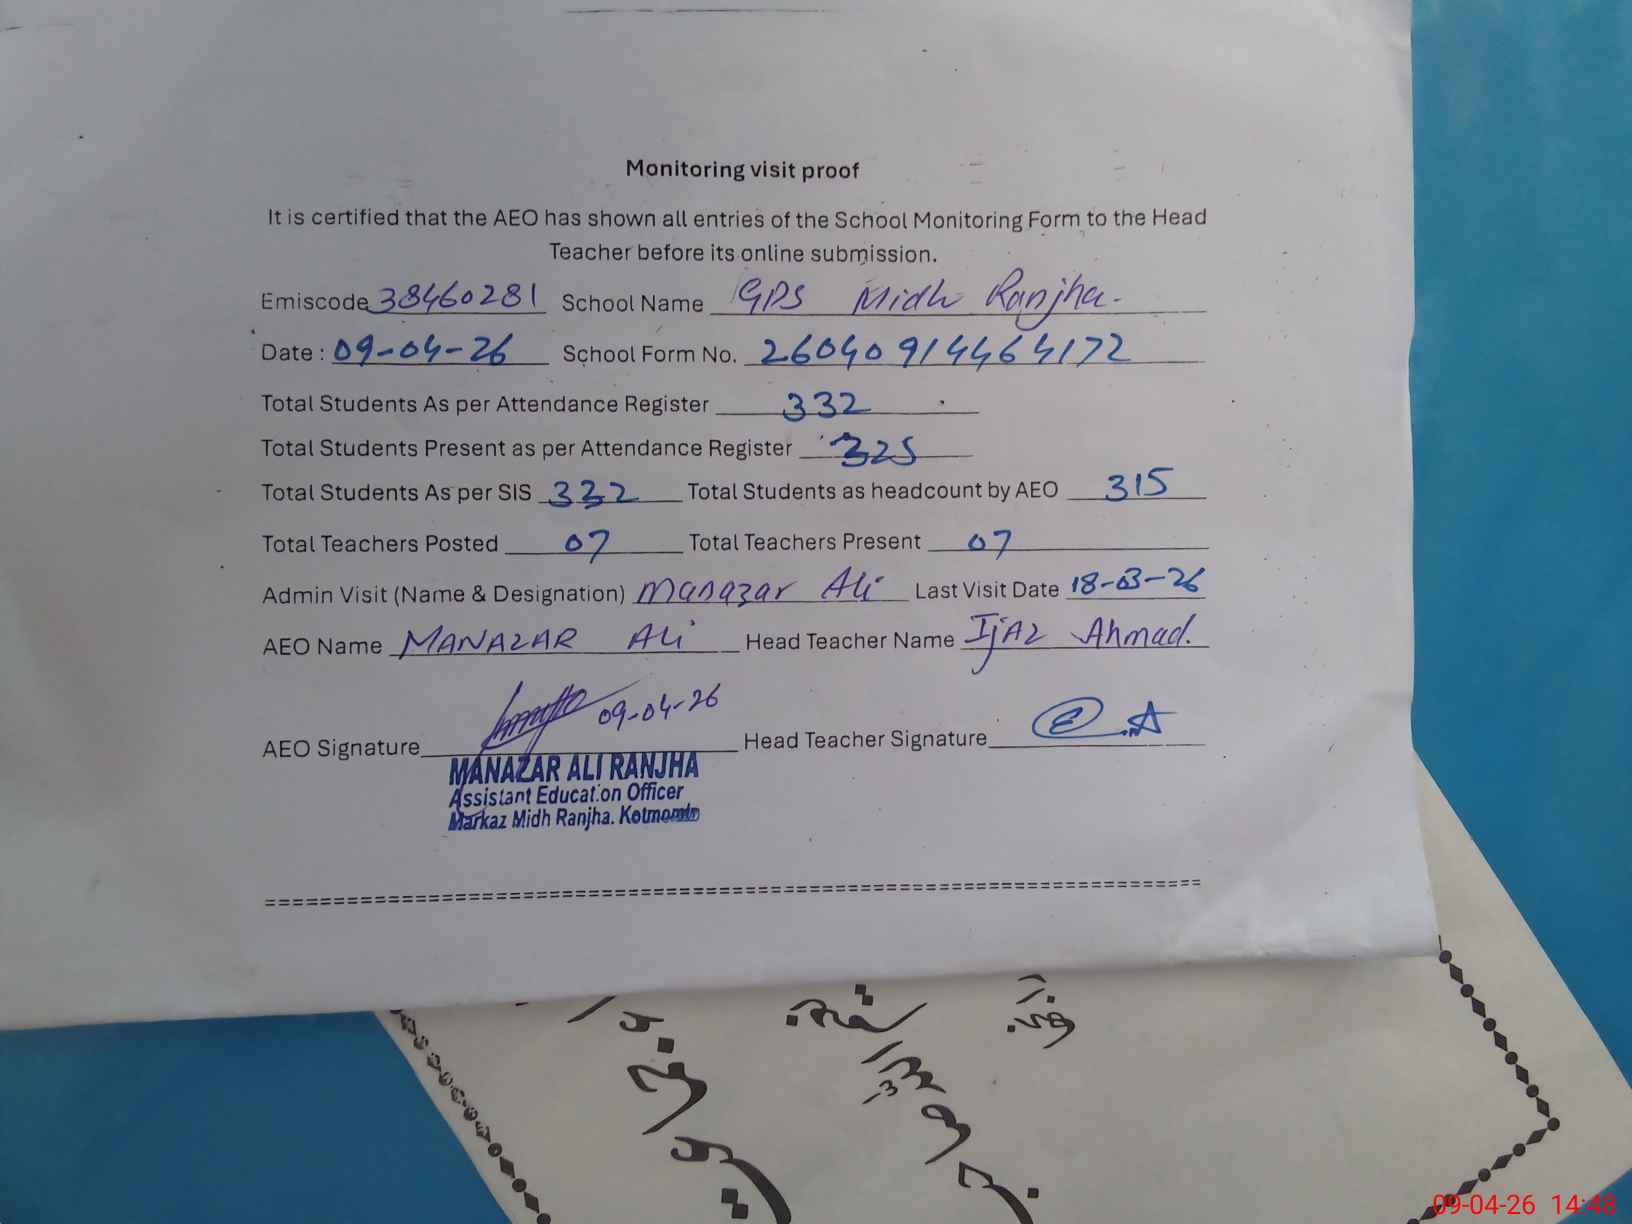 Monitoring visit proof
It is certified that the AEO has shown all entries of the School Monitoring Form to the Head
Teacher before its online submission.
Emiscode 38460281 School Name GPS Midh Ranjha.
Date : 09-04-26 School Form No. 26040914464172
Total Students As per Attendance Register 332
Total Students Present as per Attendance Register 325
Total Students As per SIS 332 Total Students as headcount by AEO 315
Total Teachers Posted 07 Total Teachers Present 07
Admin Visit (Name & Designation) Manazar Ali Last Visit Date 18-03-26
AEO Name MANAZAR ALi Head Teacher Name IjAz Ahmad.
09-04-26
AEO Signature Head Teacher Signature
MANAZAR ALI RANJHA
Assistant Education Officer
Markaz Midh Ranjha. Kotmomin
09-04-26 14:48